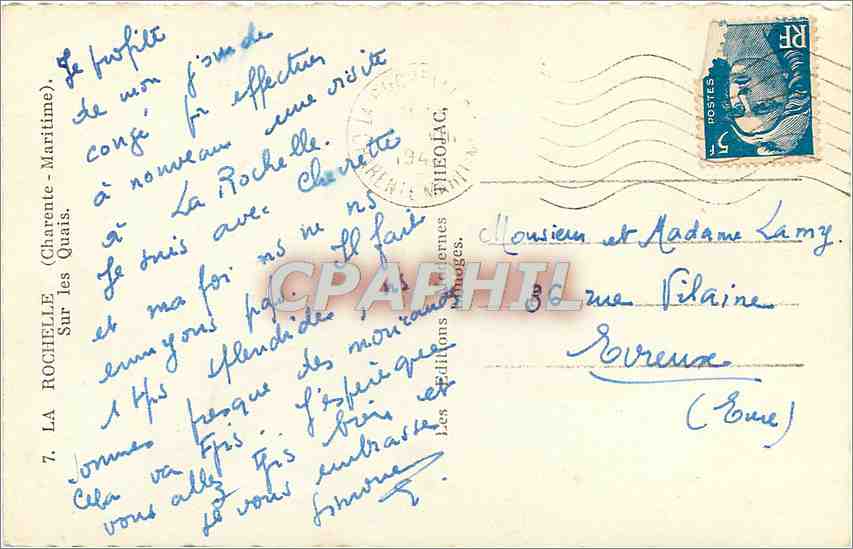 7. LA ROCHELLE (Charente - Maritime).
Sur les Quais.
Je profite
de mon jour de
congé pr effectuer
à nouveau une visite
à La Rochelle.
Je suis avec Chevrette
et ma foi ns ne ns
ennuyons pas. Il fait
1 tps splendide, ns
sommes presque des moricauds
Cela va tjrs. J'espère que
vous allez tjrs bien et
je vous embrasse
Simone
Les Editions Modernes THEOJAC,
Limoges.
CPAPHIL
POSTES
RF
5F
Monsieur et Madame Lamy.
86 rue Vilaine
Evreux
(Eure)